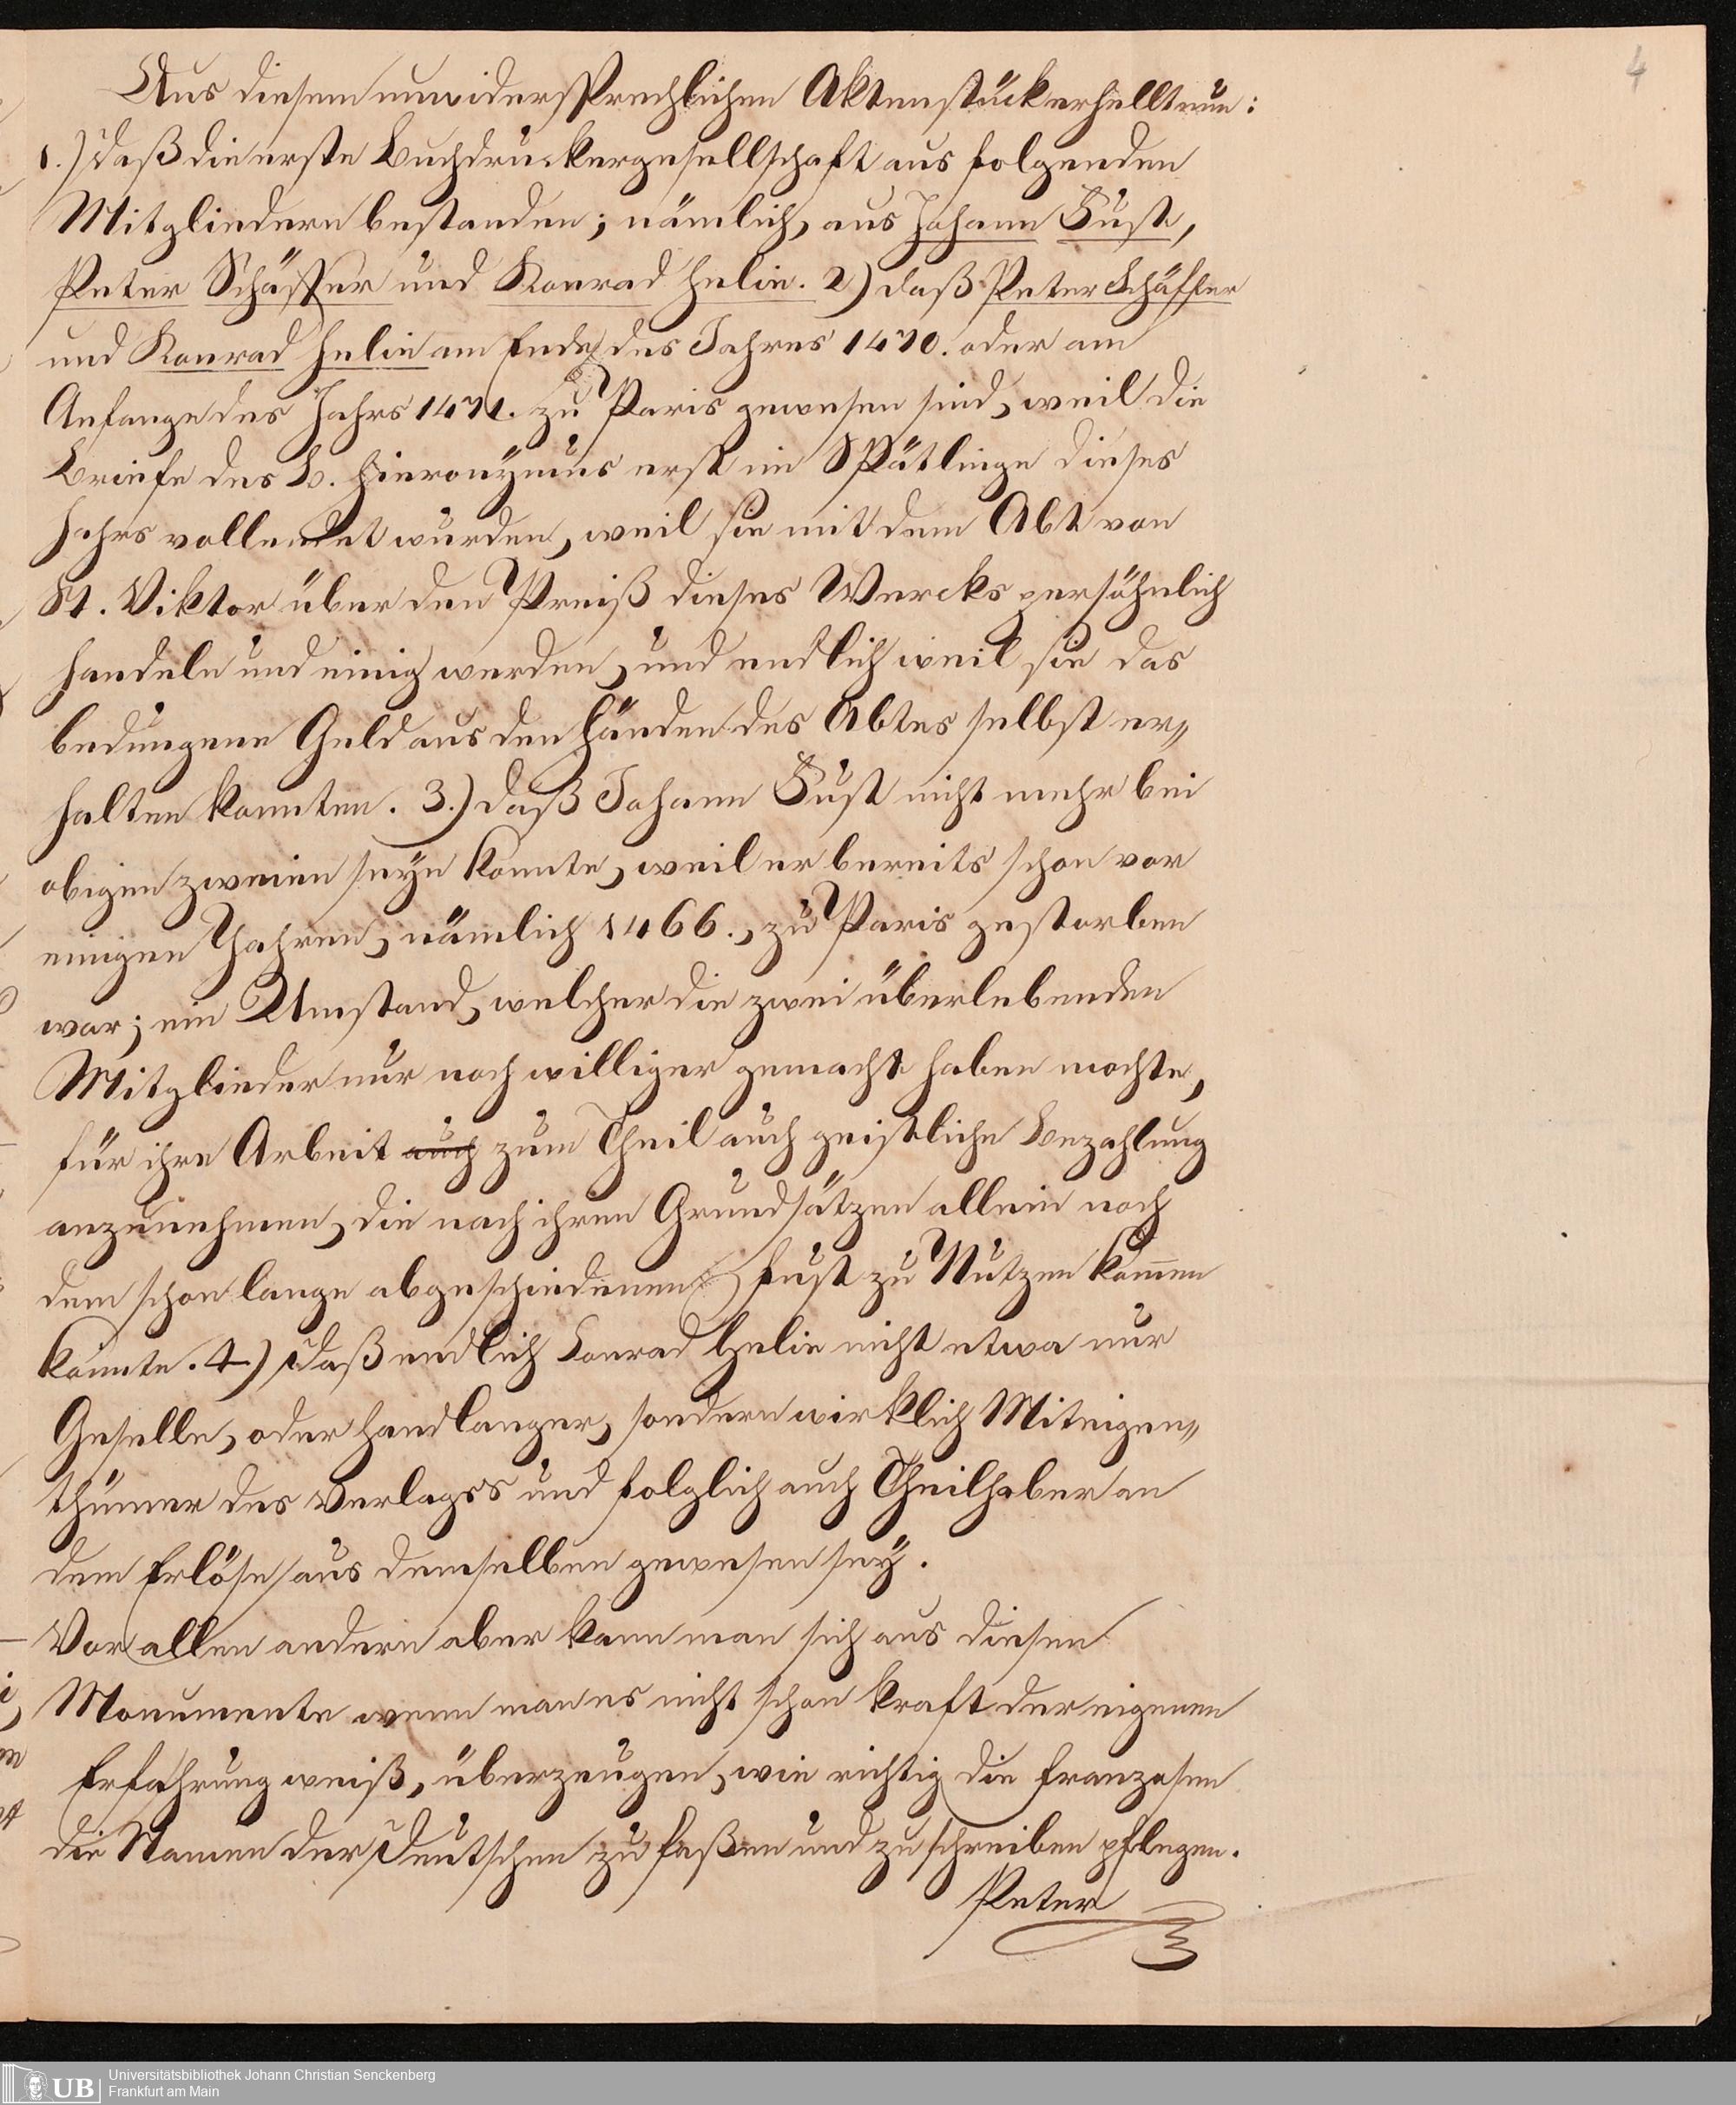 4
Aus diesem unwidersprechlichen Aktenstück erhellt nun:
1.) Daß die erste Buchdruckergesellschaft aus folgenden
Mitgliedern bestanden; nämlich, aus Johann Fust,
Peter Schäffer und Konrad Helin. 2) daß Peter Schäffer
und Konrad Helin am Ende des Jahres 1470. oder am
Anfange des Jahrs 1471. zu Paris gewesen sind, weil die
Briefe des h. Hieronÿmus erst im Spätlinge dieses
Jahrs vollendet wurden, weil sie mit dem Abt von
St. Viktor über den Preiß dieses Wercks persöhnlich
handeln und einig werden, und endlich weil sie das
bedungene Geld aus den Händen des Abtes selbst er„
halten konnten. 3.) daß Johann Fust nicht mehr bei
obigen zweien seÿn konnte, weil er bereits schon vor
einigen Jahren, nämlich 1466., zu Paris gestorben
war; ein Umstand, welcher die zwei überlebenden
Mitglieder nur noch williger gemacht haben mochte,
für ihre Arbeit auch zum Theil auch geistliche Bezahlung
anzunehmen, die nach ihren Grundsätzen allein noch
dem schon lange abgeschiedenen Fust zu Nutzen kom̄en
konnte. 4.) Daß endlich Conrad Helin nicht etwa nur
Geselle, oder Handlanger, sondern wirklich Miteigen„
thümer des Verlages und folglich auch Theilhaber an
dem Erlöse aus demselben gewesen seÿ.
Vor allen andern aber kann man sich aus diesen
Monumente wenn man es nicht schon kraft der eigenen
Erfahrung weiß, überzeugen, wie richtig die Franzosen
die Namen der Deutschen zu faßen und zu schreiben pflegen.
Peter
UB
Universitätsbibliothek Johann Christian Senckenberg
Frankfurt am Main